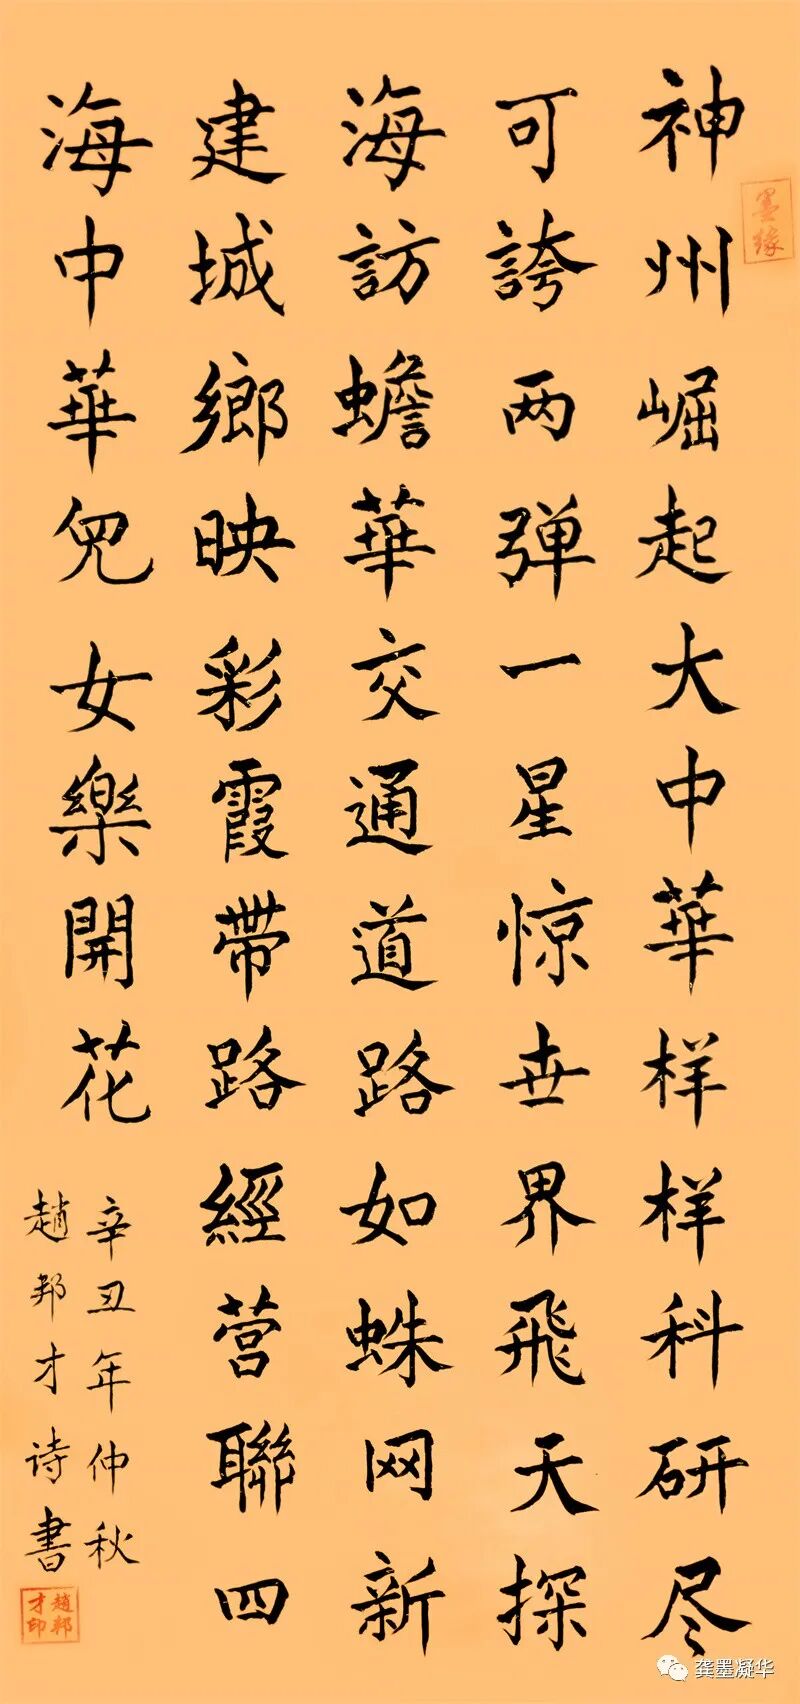 神州崛起大中華样样科研尽
可誇两弹一星惊世界飛天探
海訪蟾華交通道路如蛛网新
建城鄉映彩霞帶路經营聯四
海中華兒女樂開花
辛丑年仲秋
趙邦才诗書
墨缘
趙邦才印
龚墨凝华